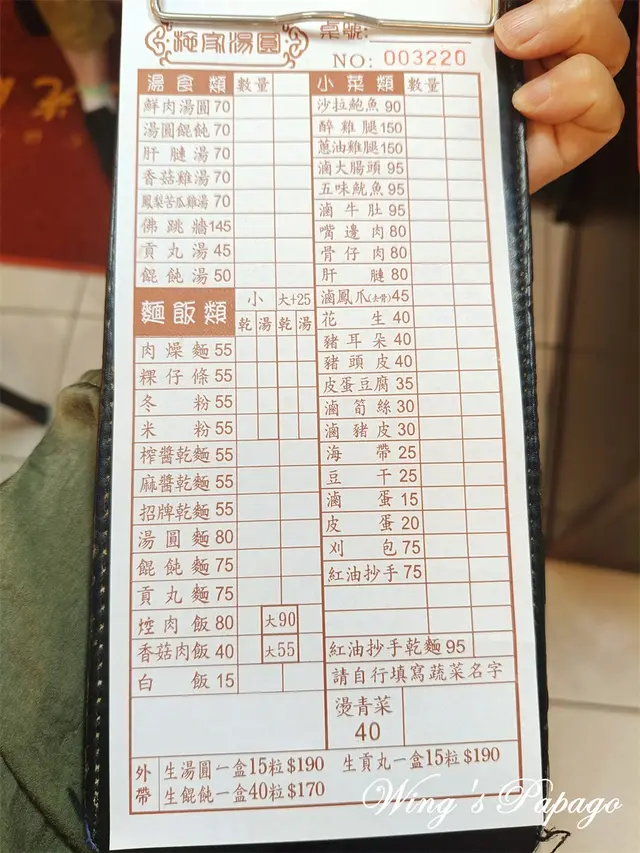 施家湯圓
桌號:
NO: 003220
湯食類 數量
鮮肉湯圓 70
湯圓餛飩 70
肝膶湯 70
香菇雞湯 70
鳳梨苦瓜雞湯 70
佛跳牆 145
貢丸湯 45
餛飩湯 50
麵飯類 小 大+25
乾 湯 乾 湯
肉燥麵 55
粿仔條 55
冬粉 55
米粉 55
榨醬乾麵 55
麻醬乾麵 55
招牌乾麵 55
湯圓麵 80
餛飩麵 75
貢丸麵 75
焢肉飯 80 大90
香菇肉飯 40 大55
白飯 15
小菜類 數量
沙拉鮑魚 90
醉雞腿 150
蔥油雞腿 150
滷大腸頭 95
五味魷魚 95
滷牛肚 95
嘴邊肉 80
骨仔肉 80
肝膶 80
滷鳳爪(去骨) 45
花生 40
豬耳朵 40
豬頭皮 40
皮蛋豆腐 35
滷筍絲 30
滷豬皮 30
海帶 25
豆干 25
滷蛋 15
皮蛋 20
刈包 75
紅油抄手 75
紅油抄手乾麵 95
請自行填寫蔬菜名字
燙青菜
40
外帶
生湯圓一盒15粒$190 生貢丸一盒15粒$190
生餛飩一盒40粒$170
Wing's Papago